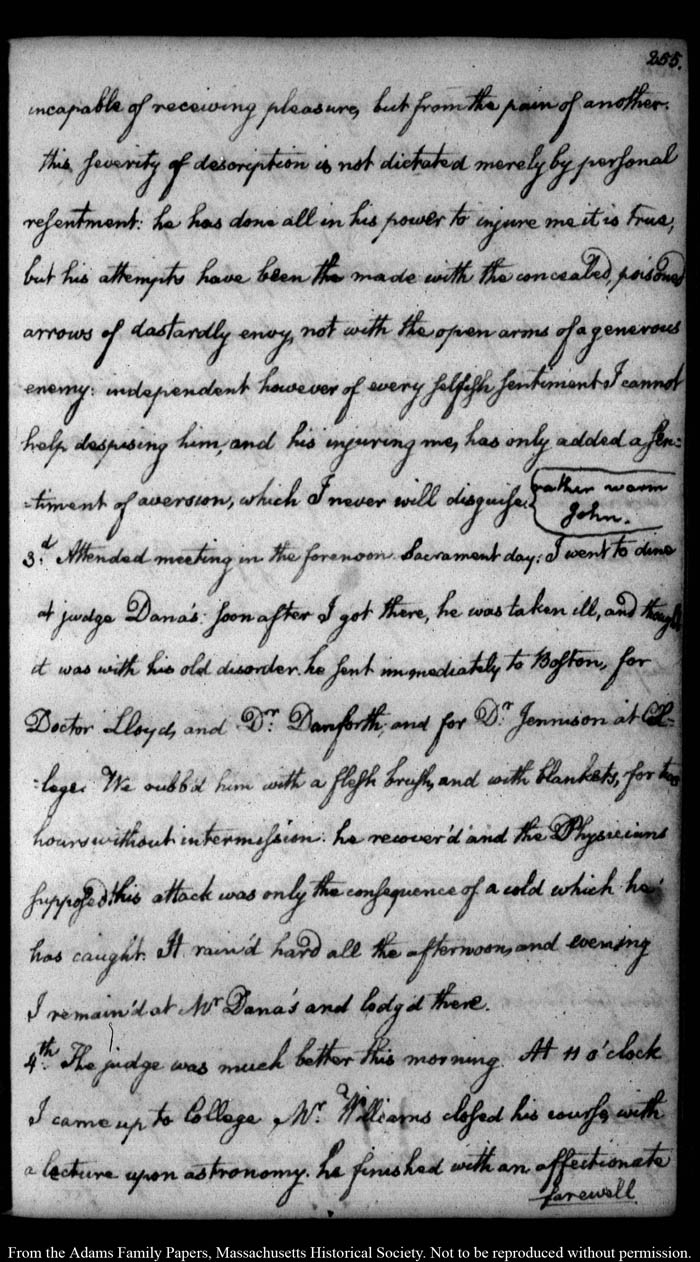 255.
incapable of receiving pleasure, but from the pain of another.
this severity of description is not dictated merely by personal
resentment: he has done all in his power to injure me it is true,
but his attempts have been the made with the concealed, poisoned
arrows of dastardly envy, not with the open arms of a generous
enemy: independent however of every selfish sentiment I cannot
help despising him, and his injuring me, has only added a sen-
-timent of aversion, which I never will disguise.
rather warm
John.
3.d Attended meeting in the forenoon. Sacrament day: I went to dine
at judge Dana's: soon after I got there, he was taken ill, and though
it was with his old disorder. he sent immediately to Boston, for
Doctor Lloyd, and Dr. Danforth, and for Dr. Jennison at Col-
-lege. We rubb'd him with a flesh brush, and with blankets, for two
hours without intermission: he recover'd and the Physicians
supposed this attack was only the consequence of a cold which he
has caught. It rain'd hard all the afternoon, and evening
I remain'd at Mr. Dana's and lodg'd there.
4th. The judge was much better this morning. At 11 o'clock
I came up to College Mr. Williams closed his course, with
a lecture upon astronomy. he finished with an affectionate
farewell
From the Adams Family Papers, Massachusetts Historical Society. Not to be reproduced without permission.